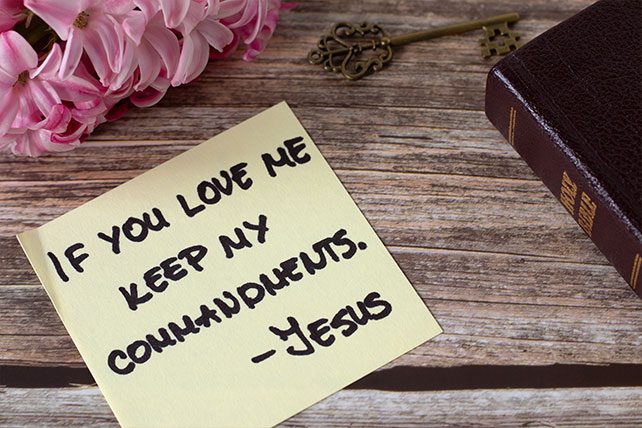 IF YOU LOVE ME
KEEP MY
COMMANDMENTS.
-JESUS
HOLY
BIBLE